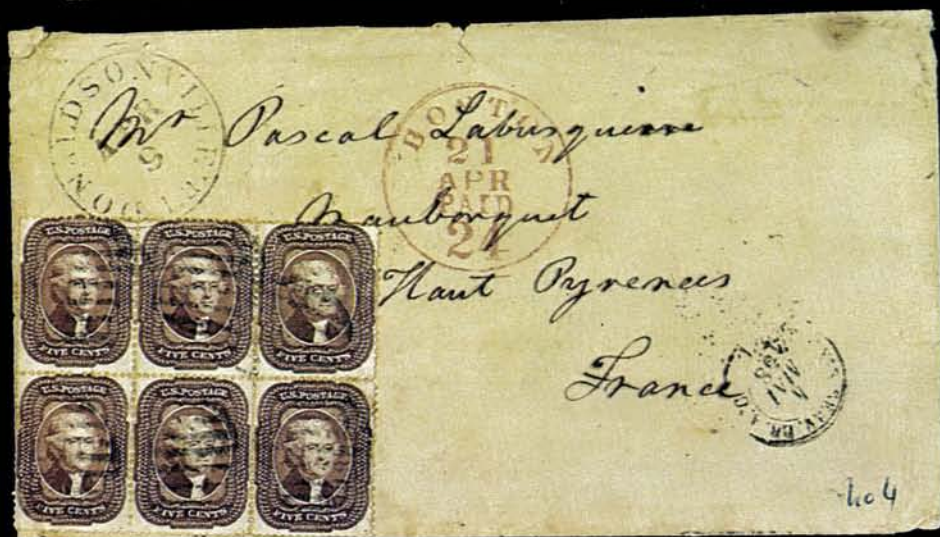 DONALDSONVILLE
APR
9
BOSTON
21
APR
PAID
24
Mr Pascal Labusquiere
Maubourguet
Haut Pyrenees
France
MAI
58
U.S. POSTAGE
FIVE CENTS
U.S. POSTAGE
FIVE CENTS
U.S. POSTAGE
FIVE CENTS
U.S. POSTAGE
FIVE CENTS
U.S. POSTAGE
FIVE CENTS
U.S. POSTAGE
FIVE CENTS